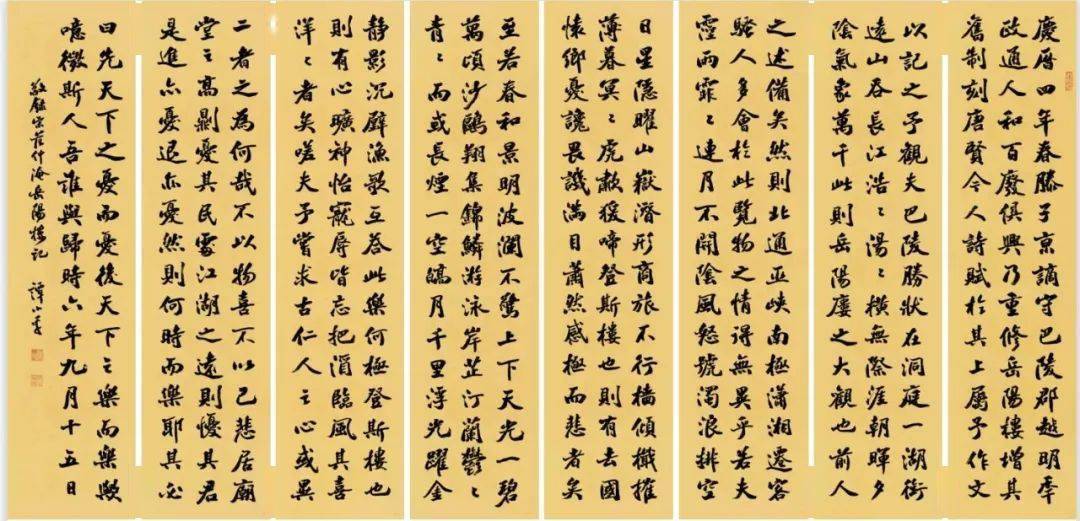 慶曆四年春滕子京謫守巴陵郡越明年
政通人和百廢俱興乃重修岳陽樓增其
舊制刻唐賢今人詩賦於其上屬予作文
以記之予觀夫巴陵勝狀在洞庭一湖銜
遠山吞長江浩〻湯〻橫無際涯朝暉夕
陰氣象萬千此則岳陽樓之大觀也前人
之述備矣然則北通巫峽南極瀟湘遷客
騷人多會於此覽物之情得無異乎若夫
霪雨霏〻連月不開陰風怒號濁浪排空
日星隱曜山嶽潛形商旅不行檣傾檝摧
薄暮冥〻虎嘯猿啼登斯樓也則有去國
懷鄉憂讒畏譏滿目蕭然感極而悲者矣
至若春和景明波瀾不驚上下天光一碧
萬頃沙鷗翔集錦鱗游泳岸芷汀蘭鬱〻
青〻而或長煙一空皓月千里浮光躍金
靜影沉璧漁歌互荅此樂何極登斯樓也
則有心曠神怡寵辱皆忘把酒臨風其喜
洋〻者矣嗟夫予嘗求古仁人之心或異
二者之為何哉不以物喜不以己悲居廟
堂之高則憂其民處江湖之遠則憂其君
是進亦憂退亦憂然則何時而樂耶其必
曰先天下之憂而憂後天下之樂而樂歟
噫微斯人吾誰與歸時六年九月十五日
敬錄宋范仲淹岳陽樓記 譚